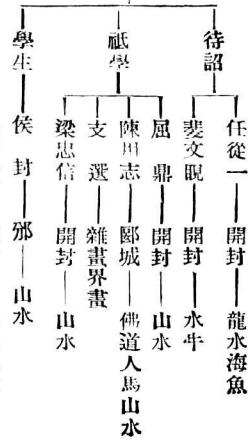 待詔
任從一 開封 龍水海魚
裴文睍 開封 水牛
祗學
屈鼎 開封 山水
陳用志 郾城 佛道人馬山水
支選 雜畫界畫
梁忠信 開封 山水
學生
侯封 邠 山水